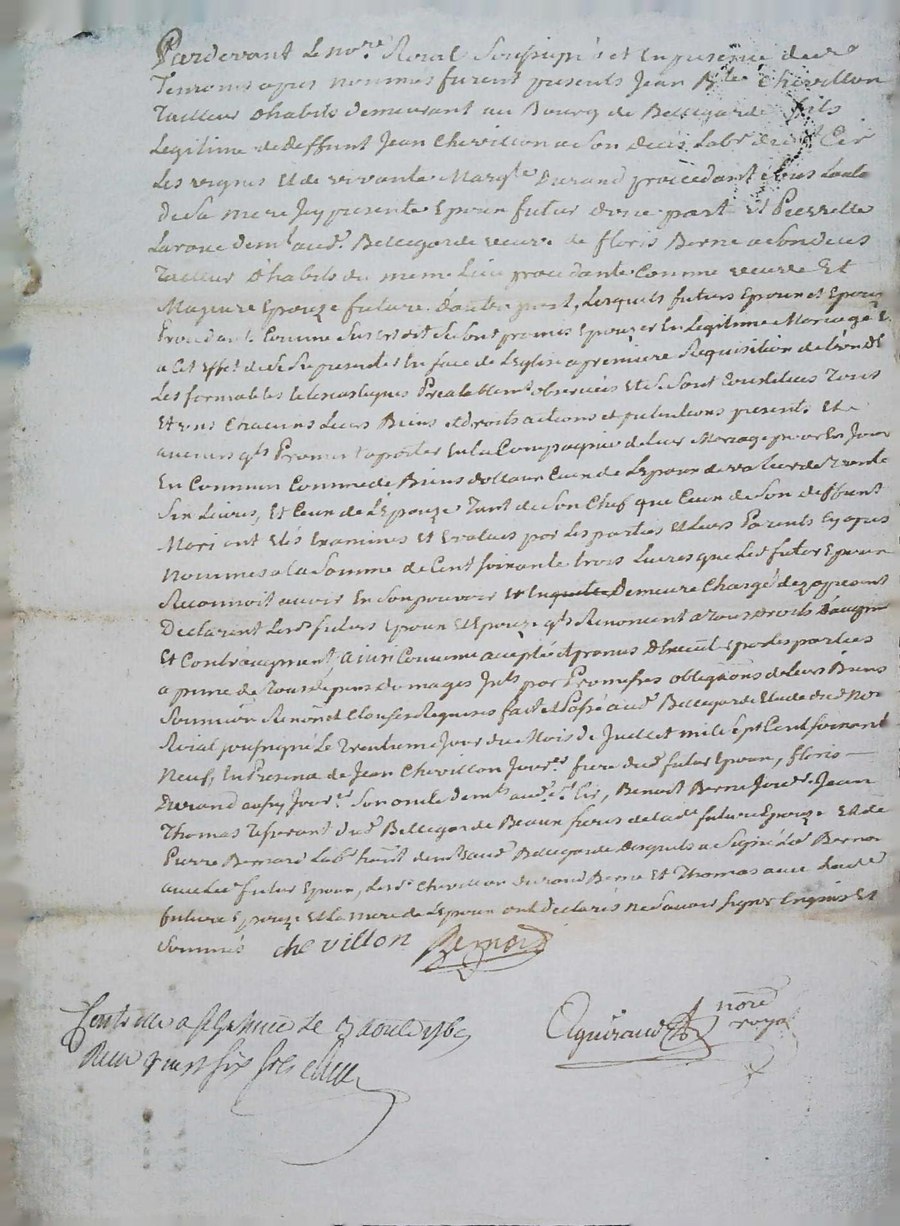 Pardevant le no.re Roial Soussigné et En presence des
Temoins apres nommes furent presents Jean B.te Chevillon
Tailleur d'habits demeurant au Bourg de Bellegarde fils
Legitime de deffunt Jean Chevillon a son deces Lab.r du d.t Cir
Les vignes Et de vivante Marg.te Durand procedant sous Lauto
de sa mere Icy presente Epoux futur d'une part Et Pierrette
Laroue dem.t aud. Bellegarde veuve de floris Berne a son deces
Tailleur d'habits du meme Lieu procedante Comme veuve Et
Majeure Epouze future d'autre part, Lesquels futurs Epoux et Epouze
Procedants Comme sus est dit se sont promis Epouzer En Legitime Mariage Et
a Cet Effet de se Representer En face de Leglise a premiere Requisition de L'un d'E
Les formalités Eclesiastiques Prealablem.t observées Et se sont Constitues Tous
Et uns Chacuns Leurs Biens et droits actions et pretentions presents Et
avenirs q.ls Promettent aporter En la Compagnie de leur Mariage pour En Jouir
En Commun Comme de Biens dottaux Ceux de L'Epoux de valeur de Trente
Six Livres, Et Ceux de L'Epouze Tant de Son Chef que Ceux de Son deffunt
Mari ont Etés Examines Et Evalues par Les parties Et Leurs Parents Cy apres
nommes a la Somme de Cent soixante trois Livres que Led. futur Epoux
Reconnoit avoir En Son pouvoir Et Demeure Chargé des apresent
Declarent Les d. futurs Epoux Et Epouze q.ls Renoncent a Tous Droits D'augment
Et Contraugment, ainsi Convenu accepté et promis
a peine de Tous depens domages Int.s par Promesses obligãons de Leurs Biens
Soumiõn Renõn et Clauses Requises fait et Passé aud. Bellegarde Etude dud. No.re
Roial soussigné Le Trentieme Jour du Mois de Juillet mil Sept Cent soixante
Neuf, En Presence de Jean Chevillon Jour.er frere dud. futur Epoux, floris
Durand aussy Jour.er Son oncle dem.ts aud. Cir, Benoit Berne Jour.r Jean
Thomas Tisserant dud. Bellegarde Beaux freres de lad. future Epouze Et de
Pierre Bernard Lab. dem.t aud. Bellegarde desquels a Signé Led. Bernard
avec Led. futur Epoux, Les d. Chevillon Durand Berne Et Thomas avec Lad.
future Epouze Et La mere de L'Epoux ont declarés ne Savoir signer Enquis Et
Sommés Chevillon Bernard
Aguiraud nõre
royal
Controllé a le 3 aout 1769
Recu vingt six sols